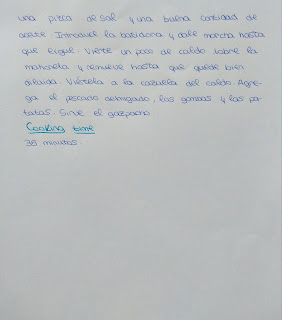 una pizca de sal y una buena cantidad de
aceite. Introduce la batidora y dale marcha hasta
que ligue. Vierte un poco de caldo sobre la
mahonesa y remueve hasta que quede bien
diluida. Viértela a la cazuela del caldo. Agre-
ga el pescado desmigado, las gambas y las pa-
tatas. Sirve el gazpacho.
Cooking time
35 minutos.